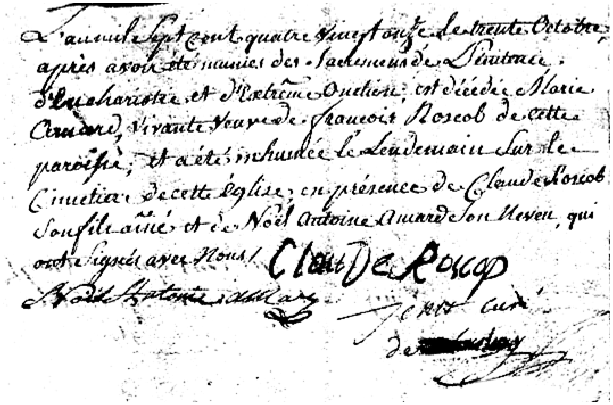 L'an mil Sept cent quatre vingt onze le trente Octobre,
après avoir été munies des Sacremens de Pénitence,
d'Eucharistie et d'Extrême Onction, est décédée Marie
vivante veuve de françois Roscob de cette
paroisse, et a été inhumée le Lendemain Sur le
Cimetier de cette église, en présence de Claude Roscob
Son fils aîné et de Noël Antoine Amard Son Neveu, qui
ont Signés avec Nous/ Claude Roscop
Noël Antoine amard
curé
de